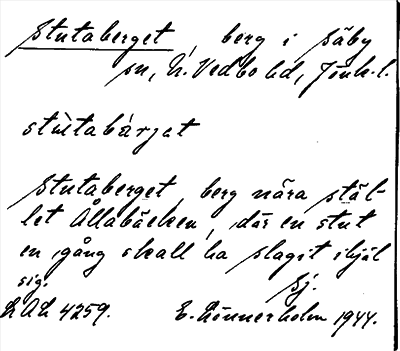 Stutaberget, berg i Säby
sn, N. Vedbo hd, Jönk. l.
stùtabárjat
Stutaberget, berg nära stäl-
let Ållabäcken, där en stut
en gång skall ha slagit ihjäl
sig. Sj.
LAL 4259. E. Rönnerholm 1944.